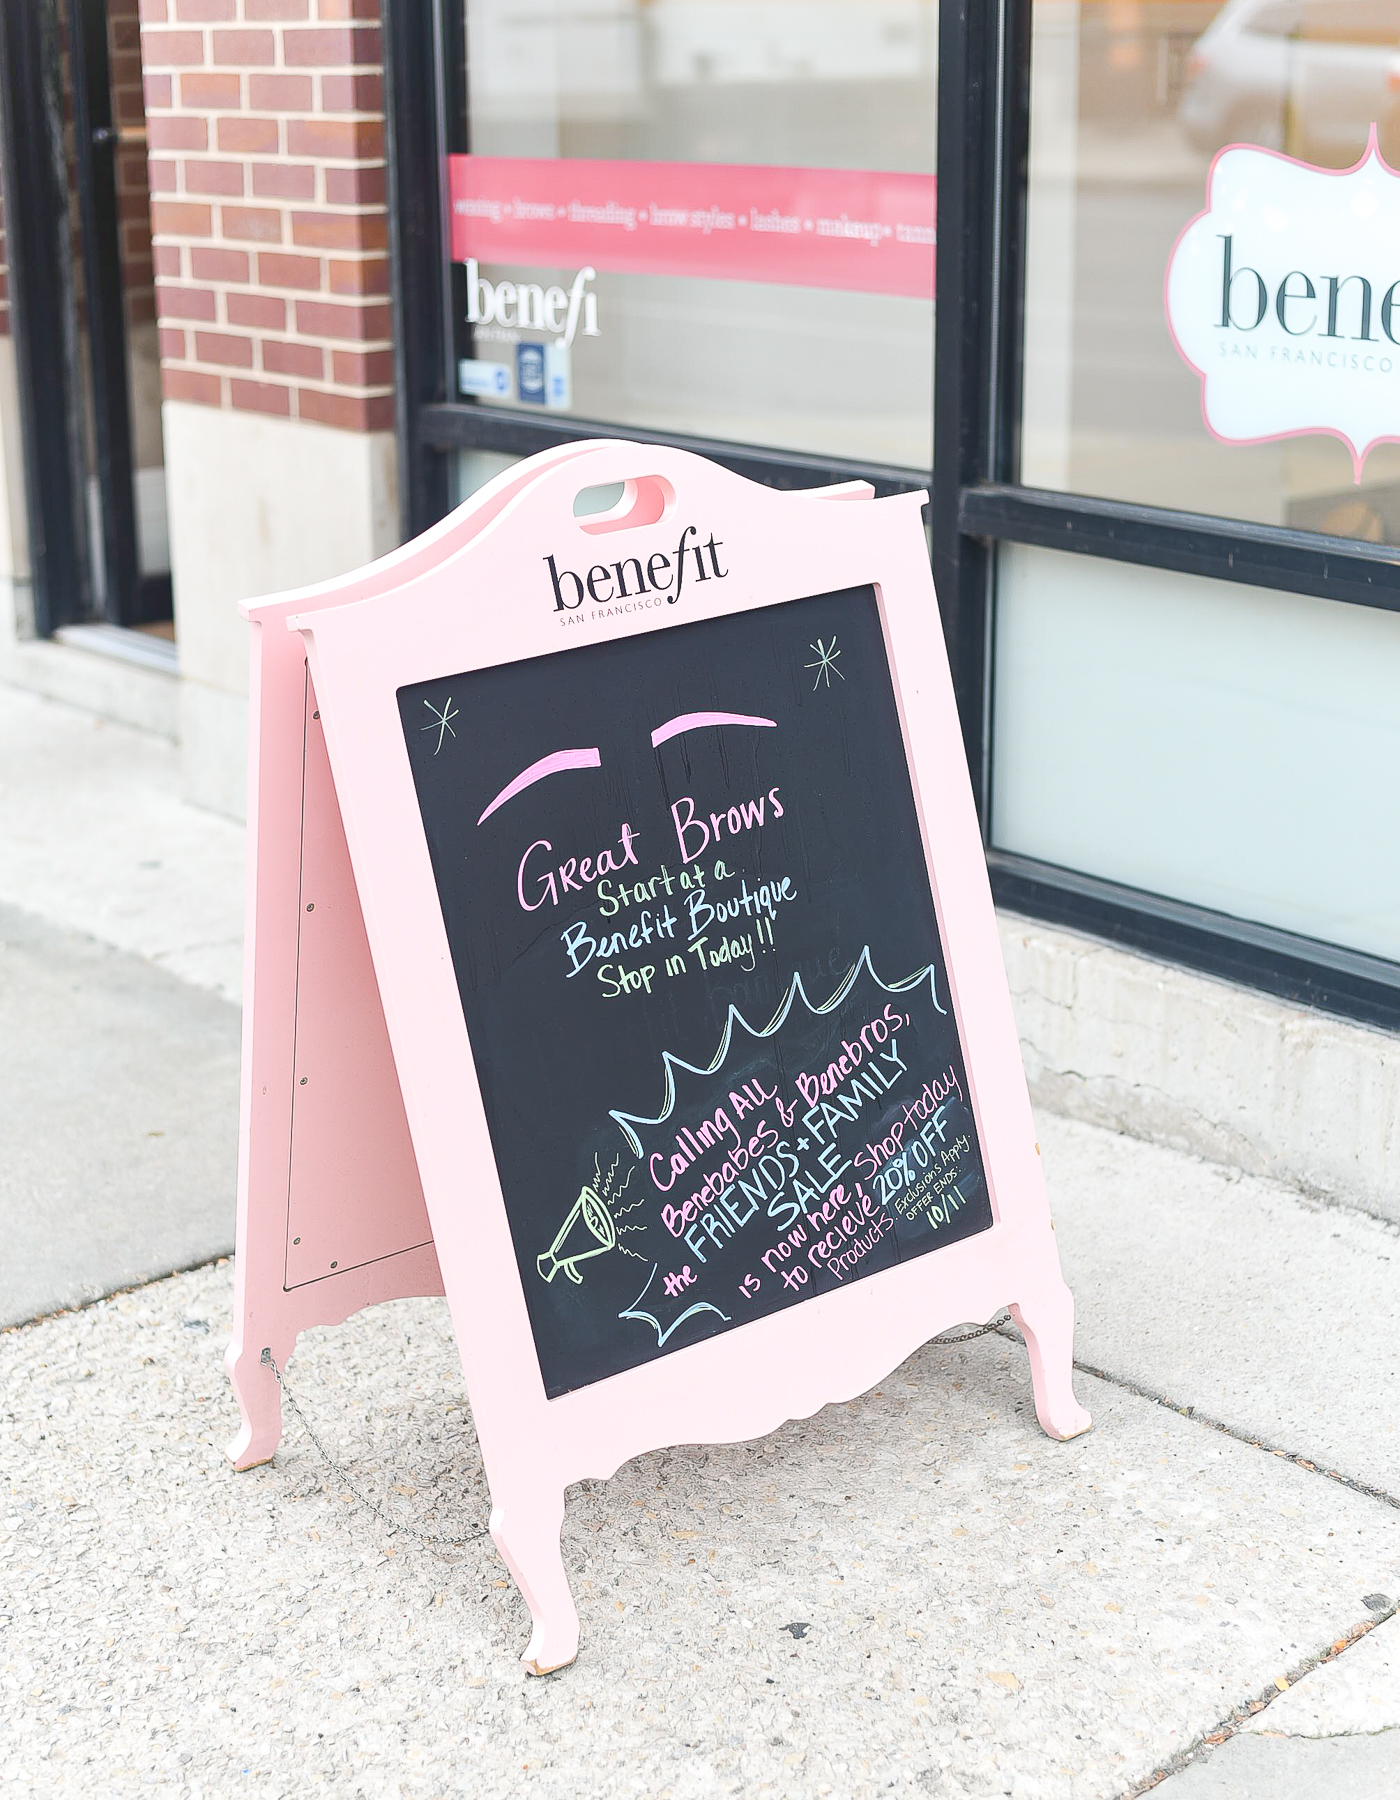 waxing • brows • threading • brow styles • lashes • makeup •
benefi
bene
SAN FRANCISCO
benefit
SAN FRANCISCO
Great Brows
Start at a
Benefit Boutique
Stop in Today!!
Calling All
Benebabes & Benebros,
the FRIENDS + FAMILY
SALE
is now here, Shop today
to recieve 20% OFF
Products.
Exclusions Apply.
OFFER ENDS:
10/11